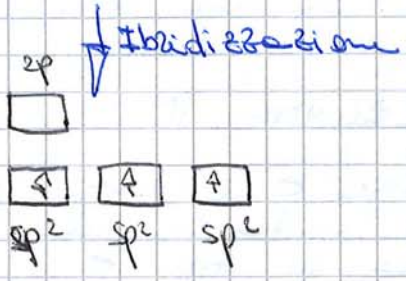 Ibridizzazione
2p
sp² sp² sp²